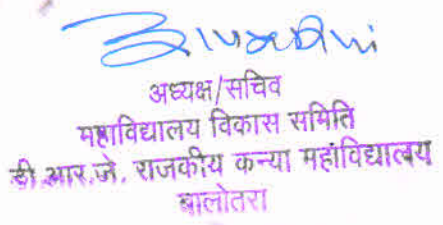 अध्यक्ष/सचिव
महाविद्यालय विकास समिति
डी.आर.जे. राजकीय कन्या महाविद्यालय
बालोतरा